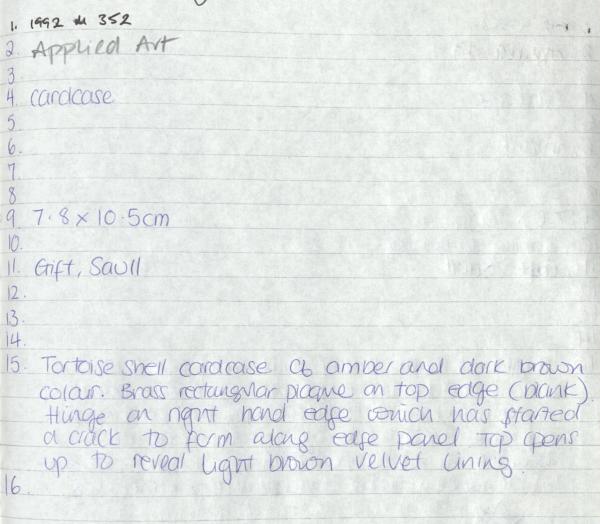 1. 1992 352
2. Applied Art
3
4. cardcase
5
6.
7.
8
9. 7.8 x 10.5cm
10.
11. Gift, Saull
12.
13.
14.
15. Tortoise shell cardcase of amber and dark brown
colour. Brass rectangular plaque on top edge (blank).
Hinge on right hand edge which has started
a crack to form along edge panel Top opens
up to reveal light brown velvet lining.
16.